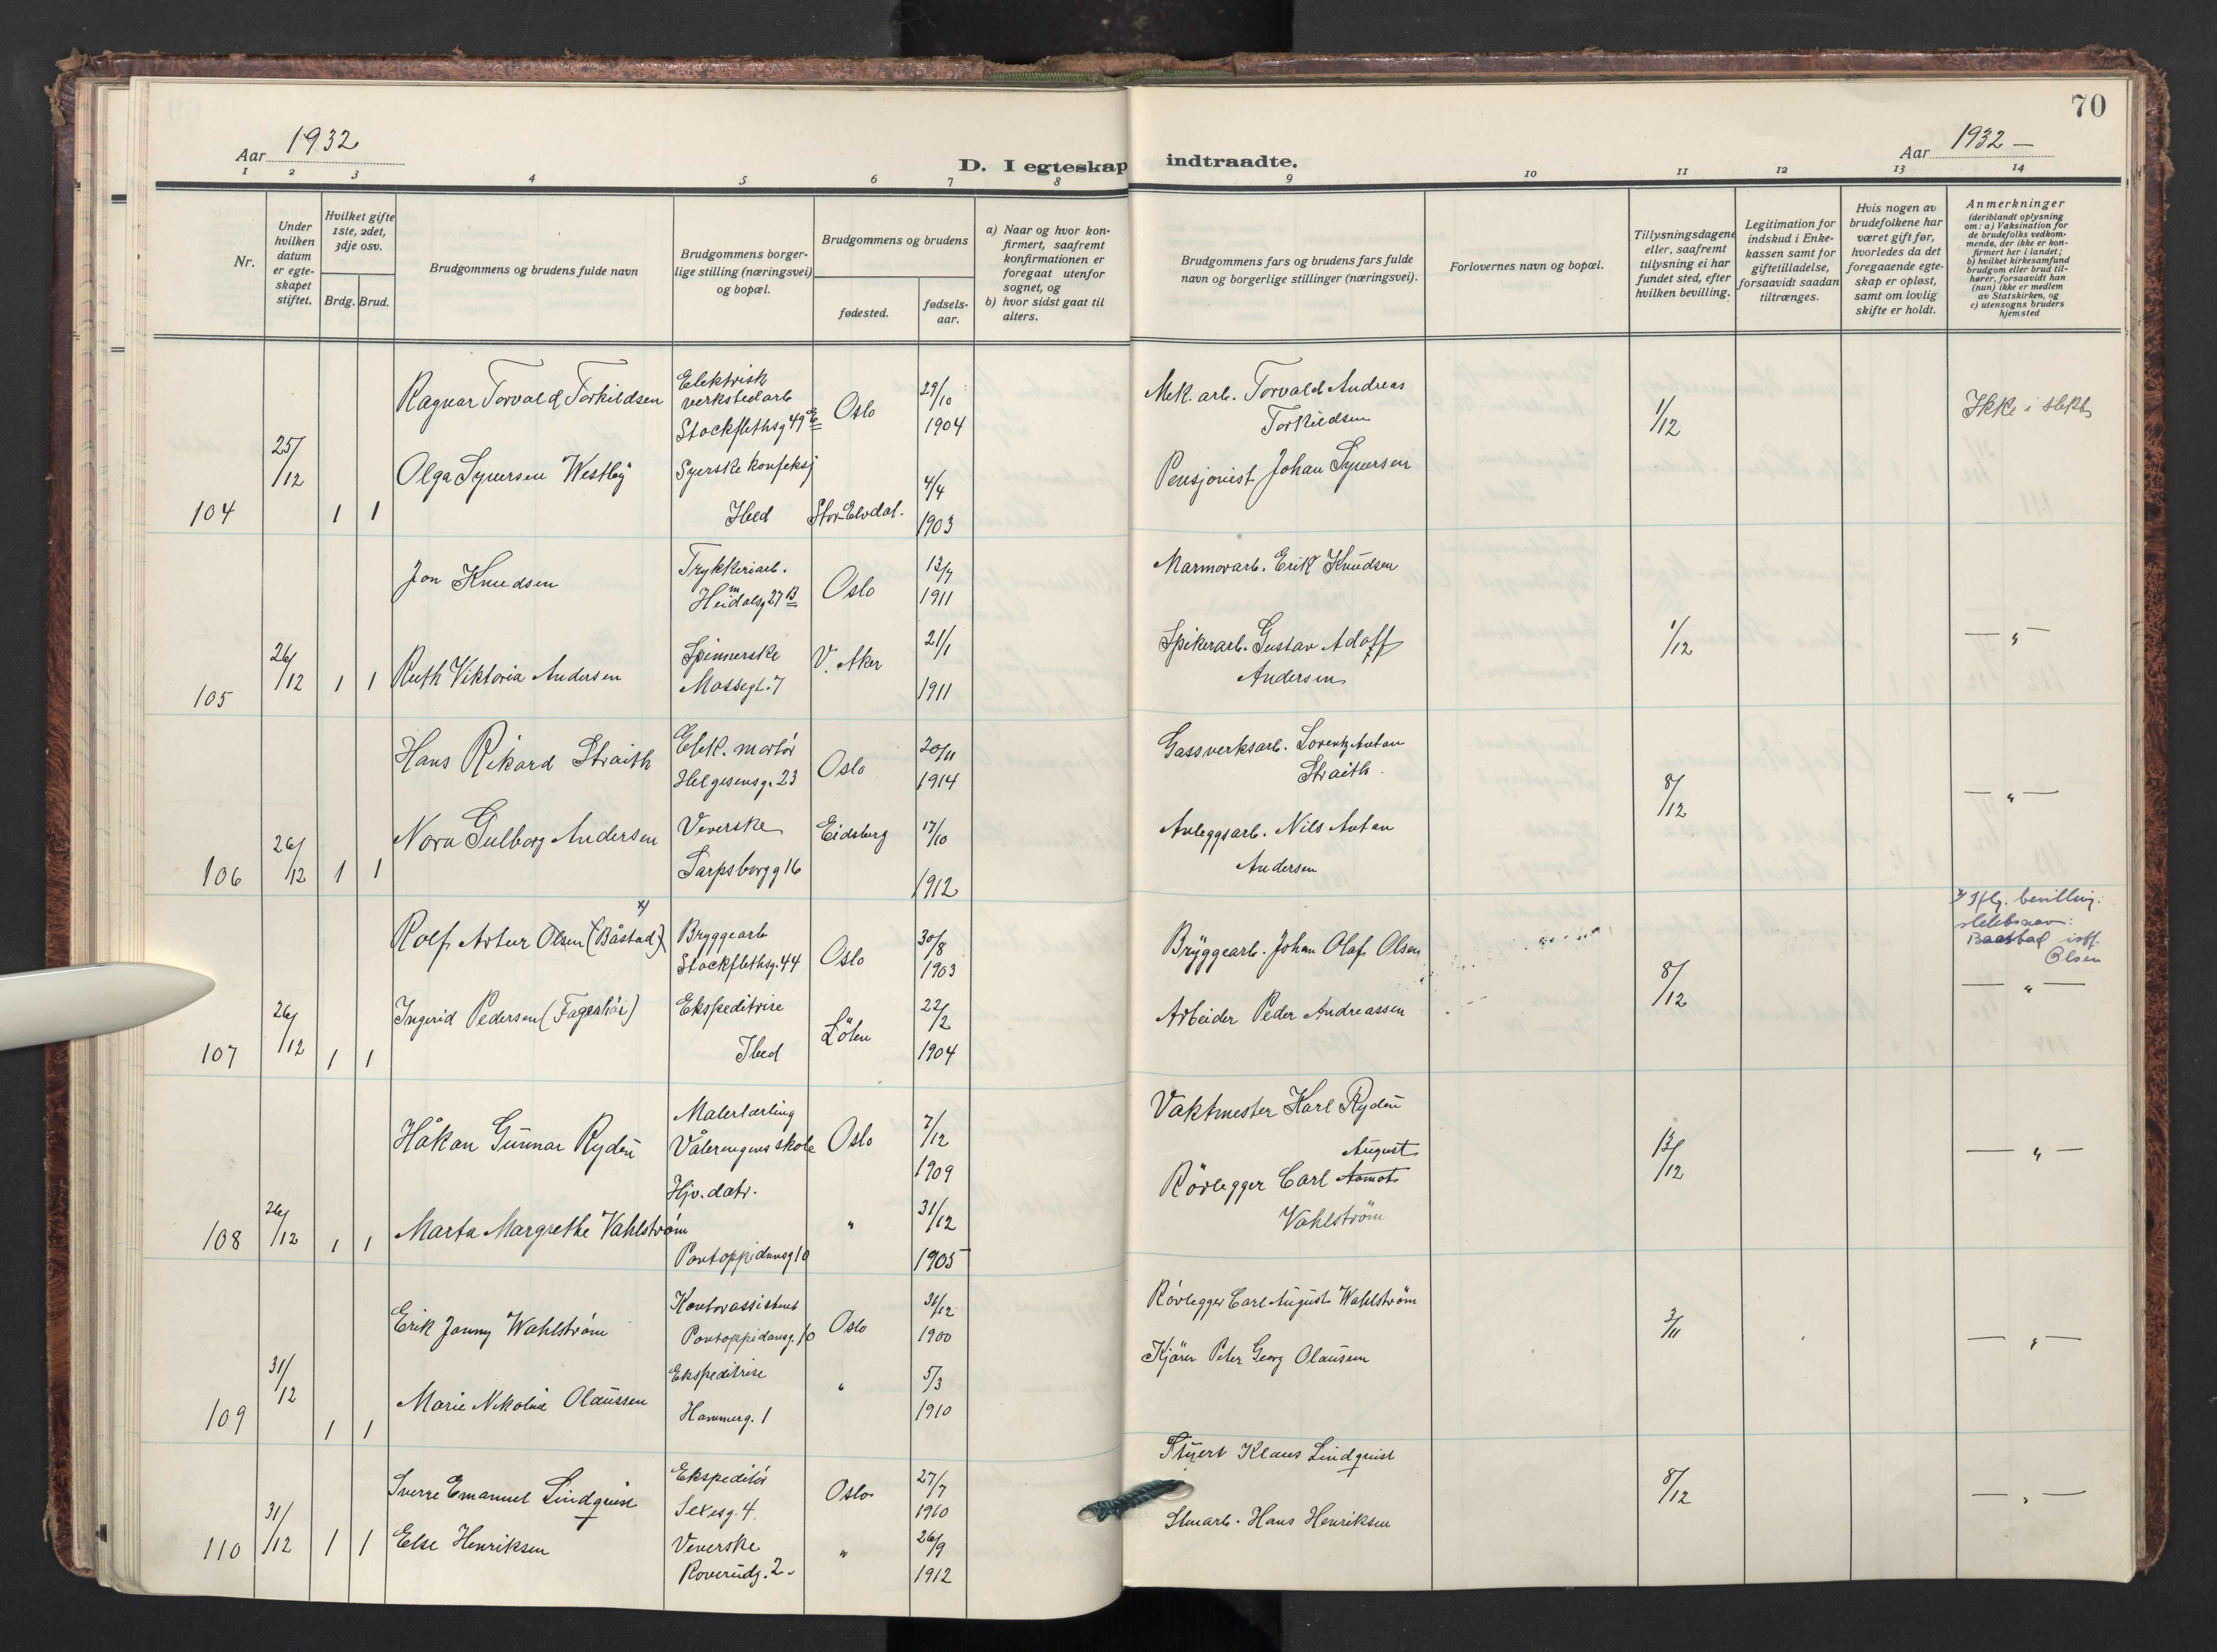 70
Aar 1932
Aar 1932 –
D. I egteskap indtraadte.
1 2 3 4 5 6 7 8 9 10 11 12 13 14
Nr.
Under hvilken datum er egteskapet stiftet.
Hvilket gifte 1ste, 2det, 3dje osv.
Brdg. Brud.
Brudgommens og brudens fulde navn
Brudgommens borgerlige stilling (næringsvei) og bopæl.
Brudgommens og brudens
fødested.
fødselsaar.
a) Naar og hvor konfirmert, saafremt konfirmationen er foregaat utenfor sognet, og
b) hvor sidst gaat til alters.
Brudgommens fars og brudens fars fulde navn og borgerlige stillinger (næringsvei).
Forlovernes navn og bopæl.
Tillysningsdagene eller, saafremt tillysning ei har fundet sted, efter hvilken bevilling.
Legitimation for indskud i Enkekassen samt for giftetilladelse, forsaavidt saadan tiltrænges.
Hvis nogen av brudefolkene har været gift før, hvorledes da det foregaaende egteskap er opløst, samt om lovlig skifte er holdt.
Anmerkninger
(deriblandt oplysning om: a) Vaksination for de brudefolks vedkommende, der ikke er konfirmert her i landet; b) hvilket kirkesamfund brudgom eller brud tilhører, forsaavidt han (hun) ikke er medlem av Statskirken, og c) utensogns bruders hjemsted
Ragnar Torvald Torkildsen
Elektrisk verkstedarb
Stockflethsg 49 E
Oslo
29/10 1904
Mek. arb. Torvald Andreas Torkildsen
1/12
Ikke i slekt
104 25/12 1 1
Olga Synersen Westby
Syerske konfeksj
Ibed
Stor-Elvdal.
4/4 1903
Pensjonist Johan Synersen
Jon Knudsen
Trykkeriarb.
Heimdalsg 27 B
Oslo
13/7 1911
Marmorarb. Erik Knudsen
1/12
— " —
105 26/12 1 1
Ruth Viktoria Andersen
Spinnerske
Mossegt. 7
V. Aker
21/1 1911
Spikerarb. Gustav Adolf Andersen
Hans Rikard Straith
Elek. mortör
Helgesensg. 23
Oslo
20/11 1914
Gassverksarb. Lorentz Anton Straith.
8/12
— " —
106 26/12 1 1
Nora Gulborg Andersen
Veverske
Sarpsborgg 16
Eidsberg
17/10 1912
Anleggsarb. Nils Anton Andersen
Rolf Artur Olsen (Båstad) x)
Bryggearb
Stockflethsg. 44
Oslo
30/8 1903
Bryggearb. Johan Olaf Olsen
8/12
x) Iflg. bevilling. slektsnavn: Baastad istf. Olsen
— " —
107 26/12 1 1
Ingerid Pedersen (Fageshöi)
Ekspeditrise
Ibed
Löten
22/2 1904
Arbeider Peder Andreassen
Håkan Gunnar Rydén
Malerlærling
Vålerengens skole
Oslo
7/12 1909
Vaktmester Karl Rydén
13/12
— " —
108 26/12 1 1
Marta Margrethe Vahlström
Hjv. datr.
Pontoppidansg 10
"
31/12 1905
Rörlegger Carl August Vahlström
Erik Janny Wahlström
Kontorassistent
Pontoppidansg. 10
Oslo
31/12 1900
Rörlegger Carl August Wahlström
3/11
— " —
109 31/12 1 1
Marie Nikoline Olaussen
Ekspeditrise
Hammerg. 1
"
5/3 1910
Kjörer Peter Georg Olaussen
Sverre Emanuel Lindquist
Ekspeditör
Sexesg. 4.
Oslo
27/7 1910
Styert Klaus Lindquist
8/12
— " —
110 31/12 1 1
Else Henriksen
Veverske
Roverudg. 2.
"
26/9 1912
Stenarb. Hans Henriksen